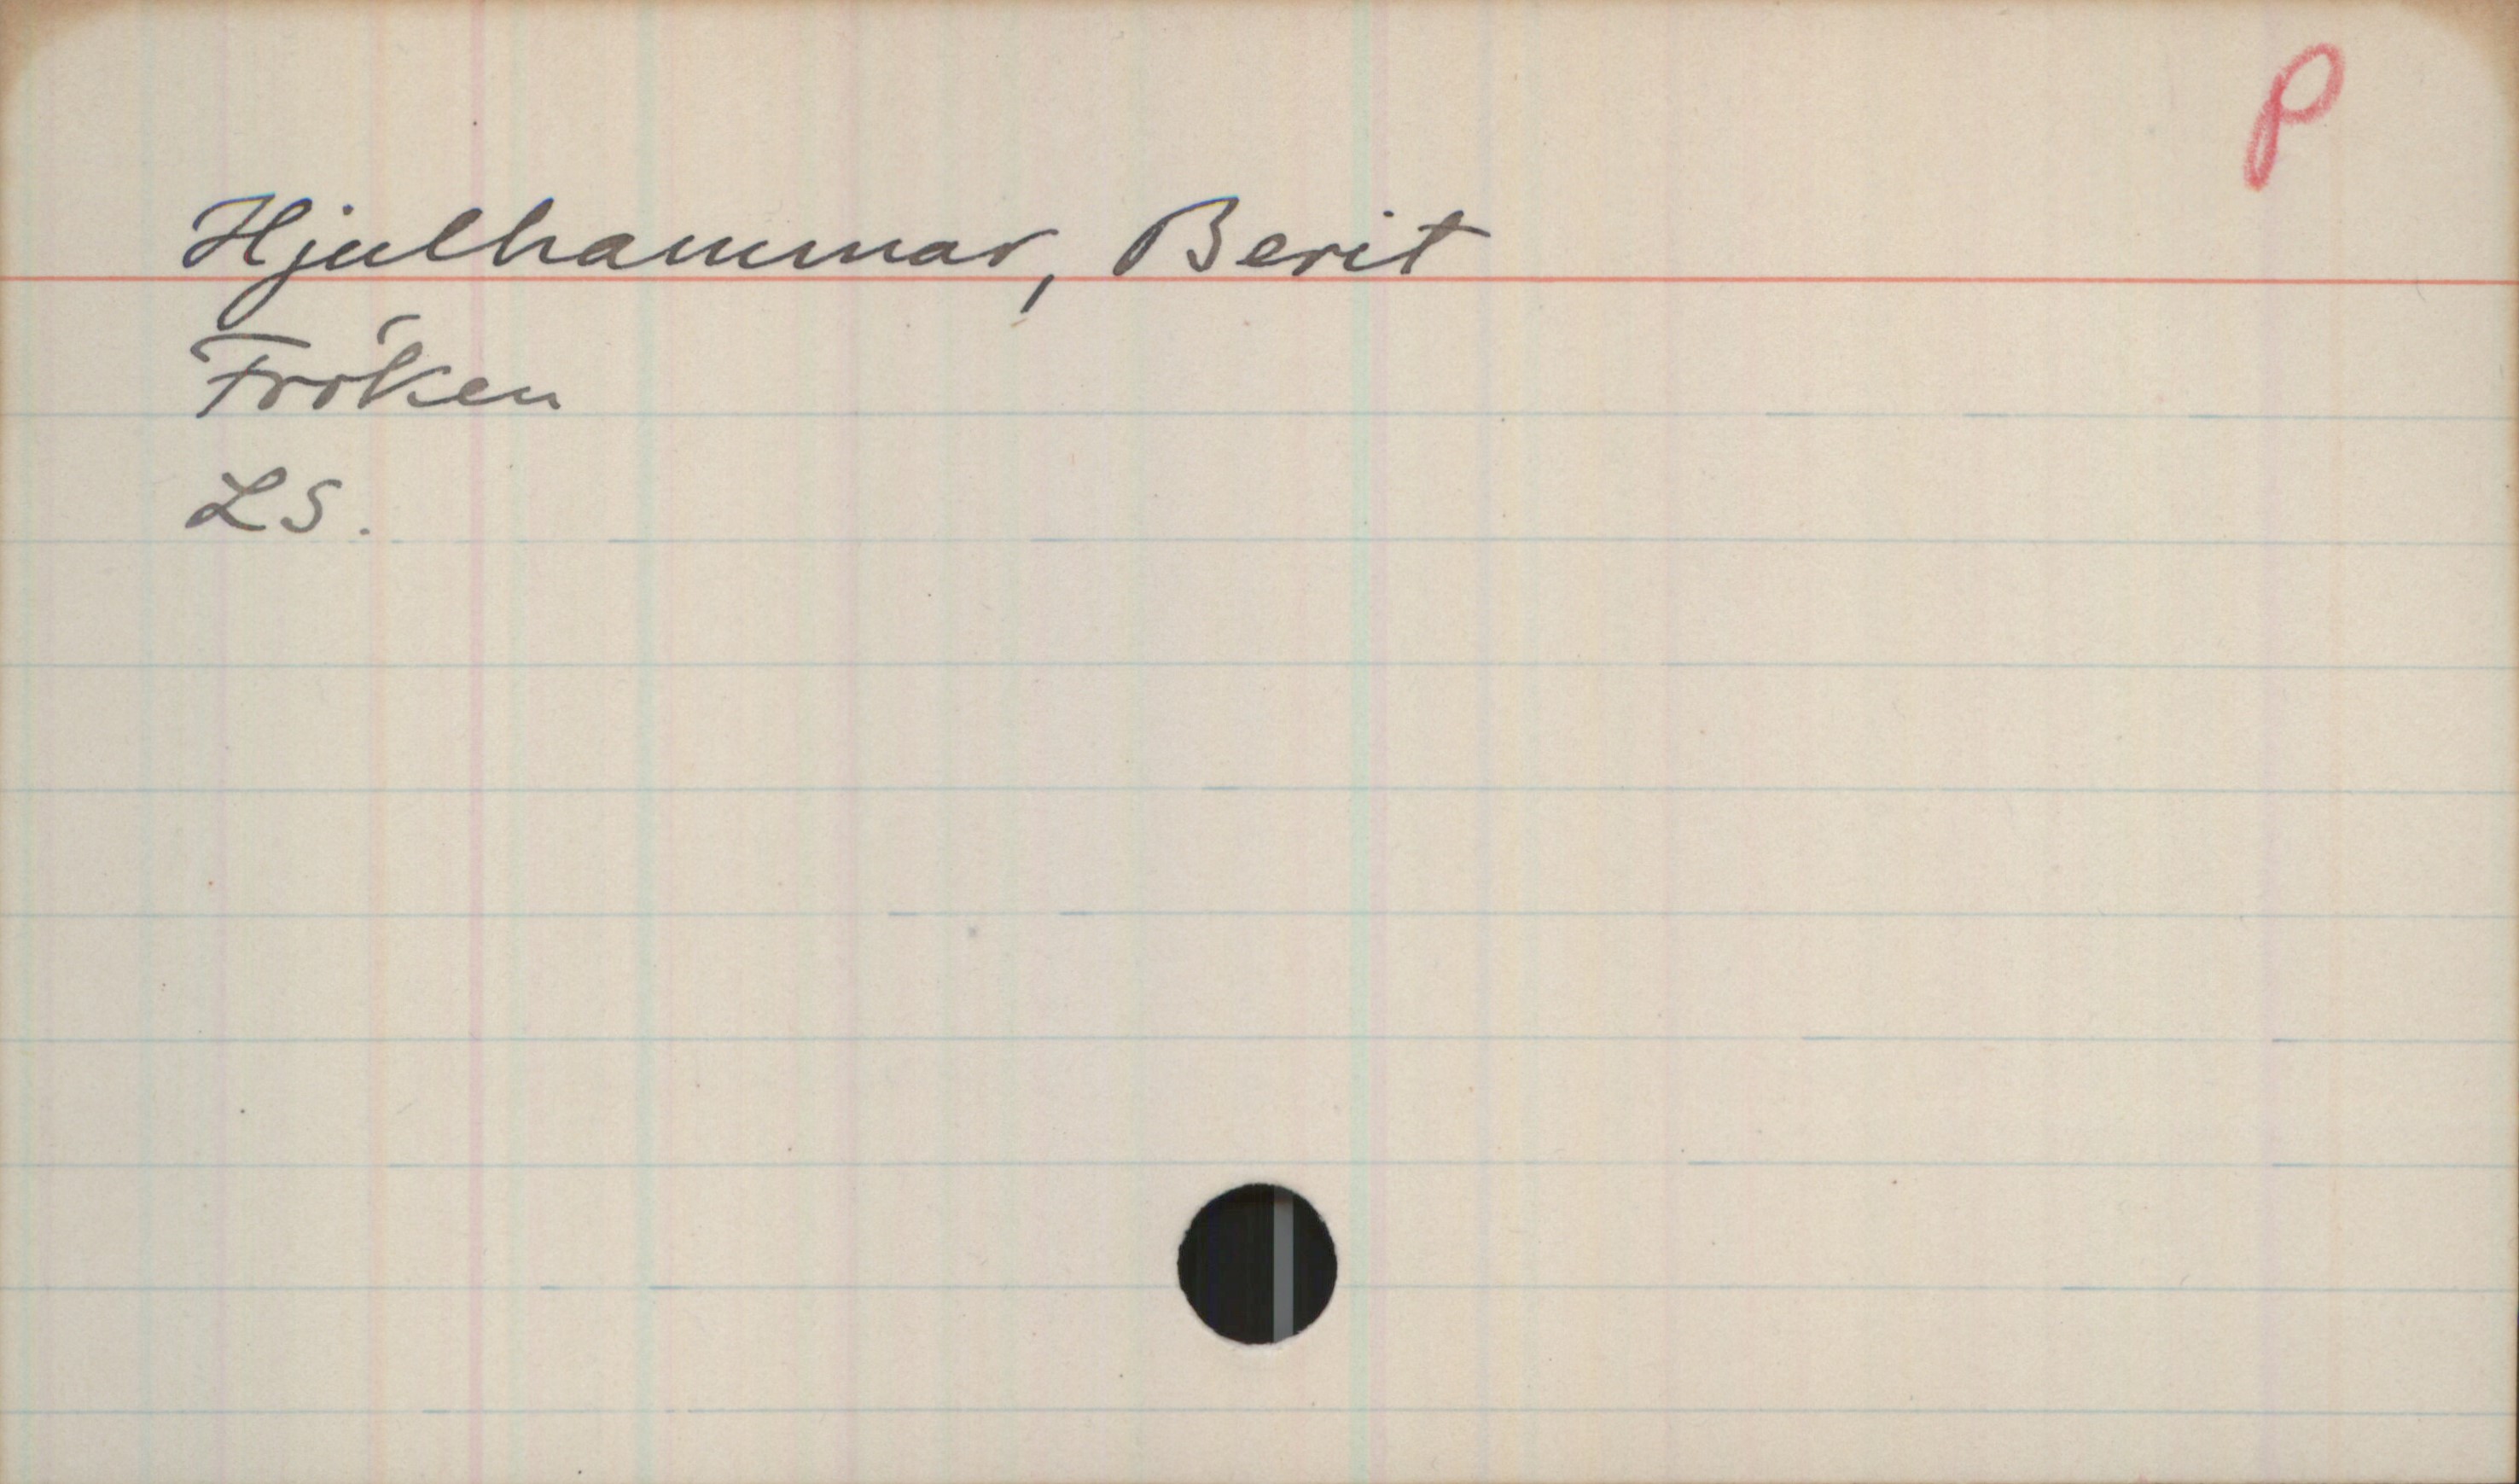 P
Hjulhammar, Berit
Fröken
LS.